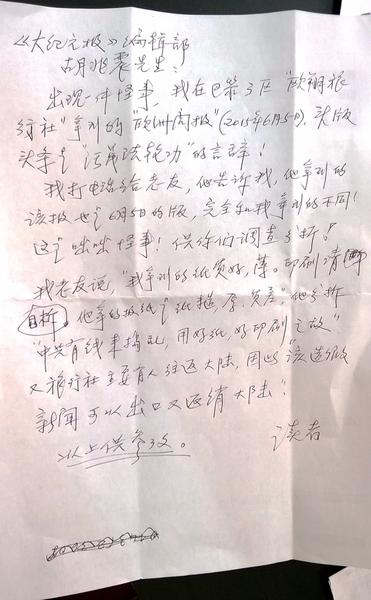 《大纪元报》编辑部
胡兆震先生：
出现一件怪事，我在巴黎3区“欧翔旅
行社”拿到的“欧洲周报”(2015年6月5日)，头版
头条是“污蔑法轮功”的言辞！
我打电话给老友，他告诉我，他拿到的
该报也是6月5日的版，完全和我拿到的不同！
这是咄咄怪事！供你们调查分析。
我老友说，“我拿到的纸质好，薄。印刷清
他拿的报纸是纸糙，厚，质差”他分析
“中共有钱来捣乱，用好纸，好印刷之故”
又旅行社主要有人往返大陆，因此“该造假
新闻可以出口又返销大陆”。
以上供参考。
读者